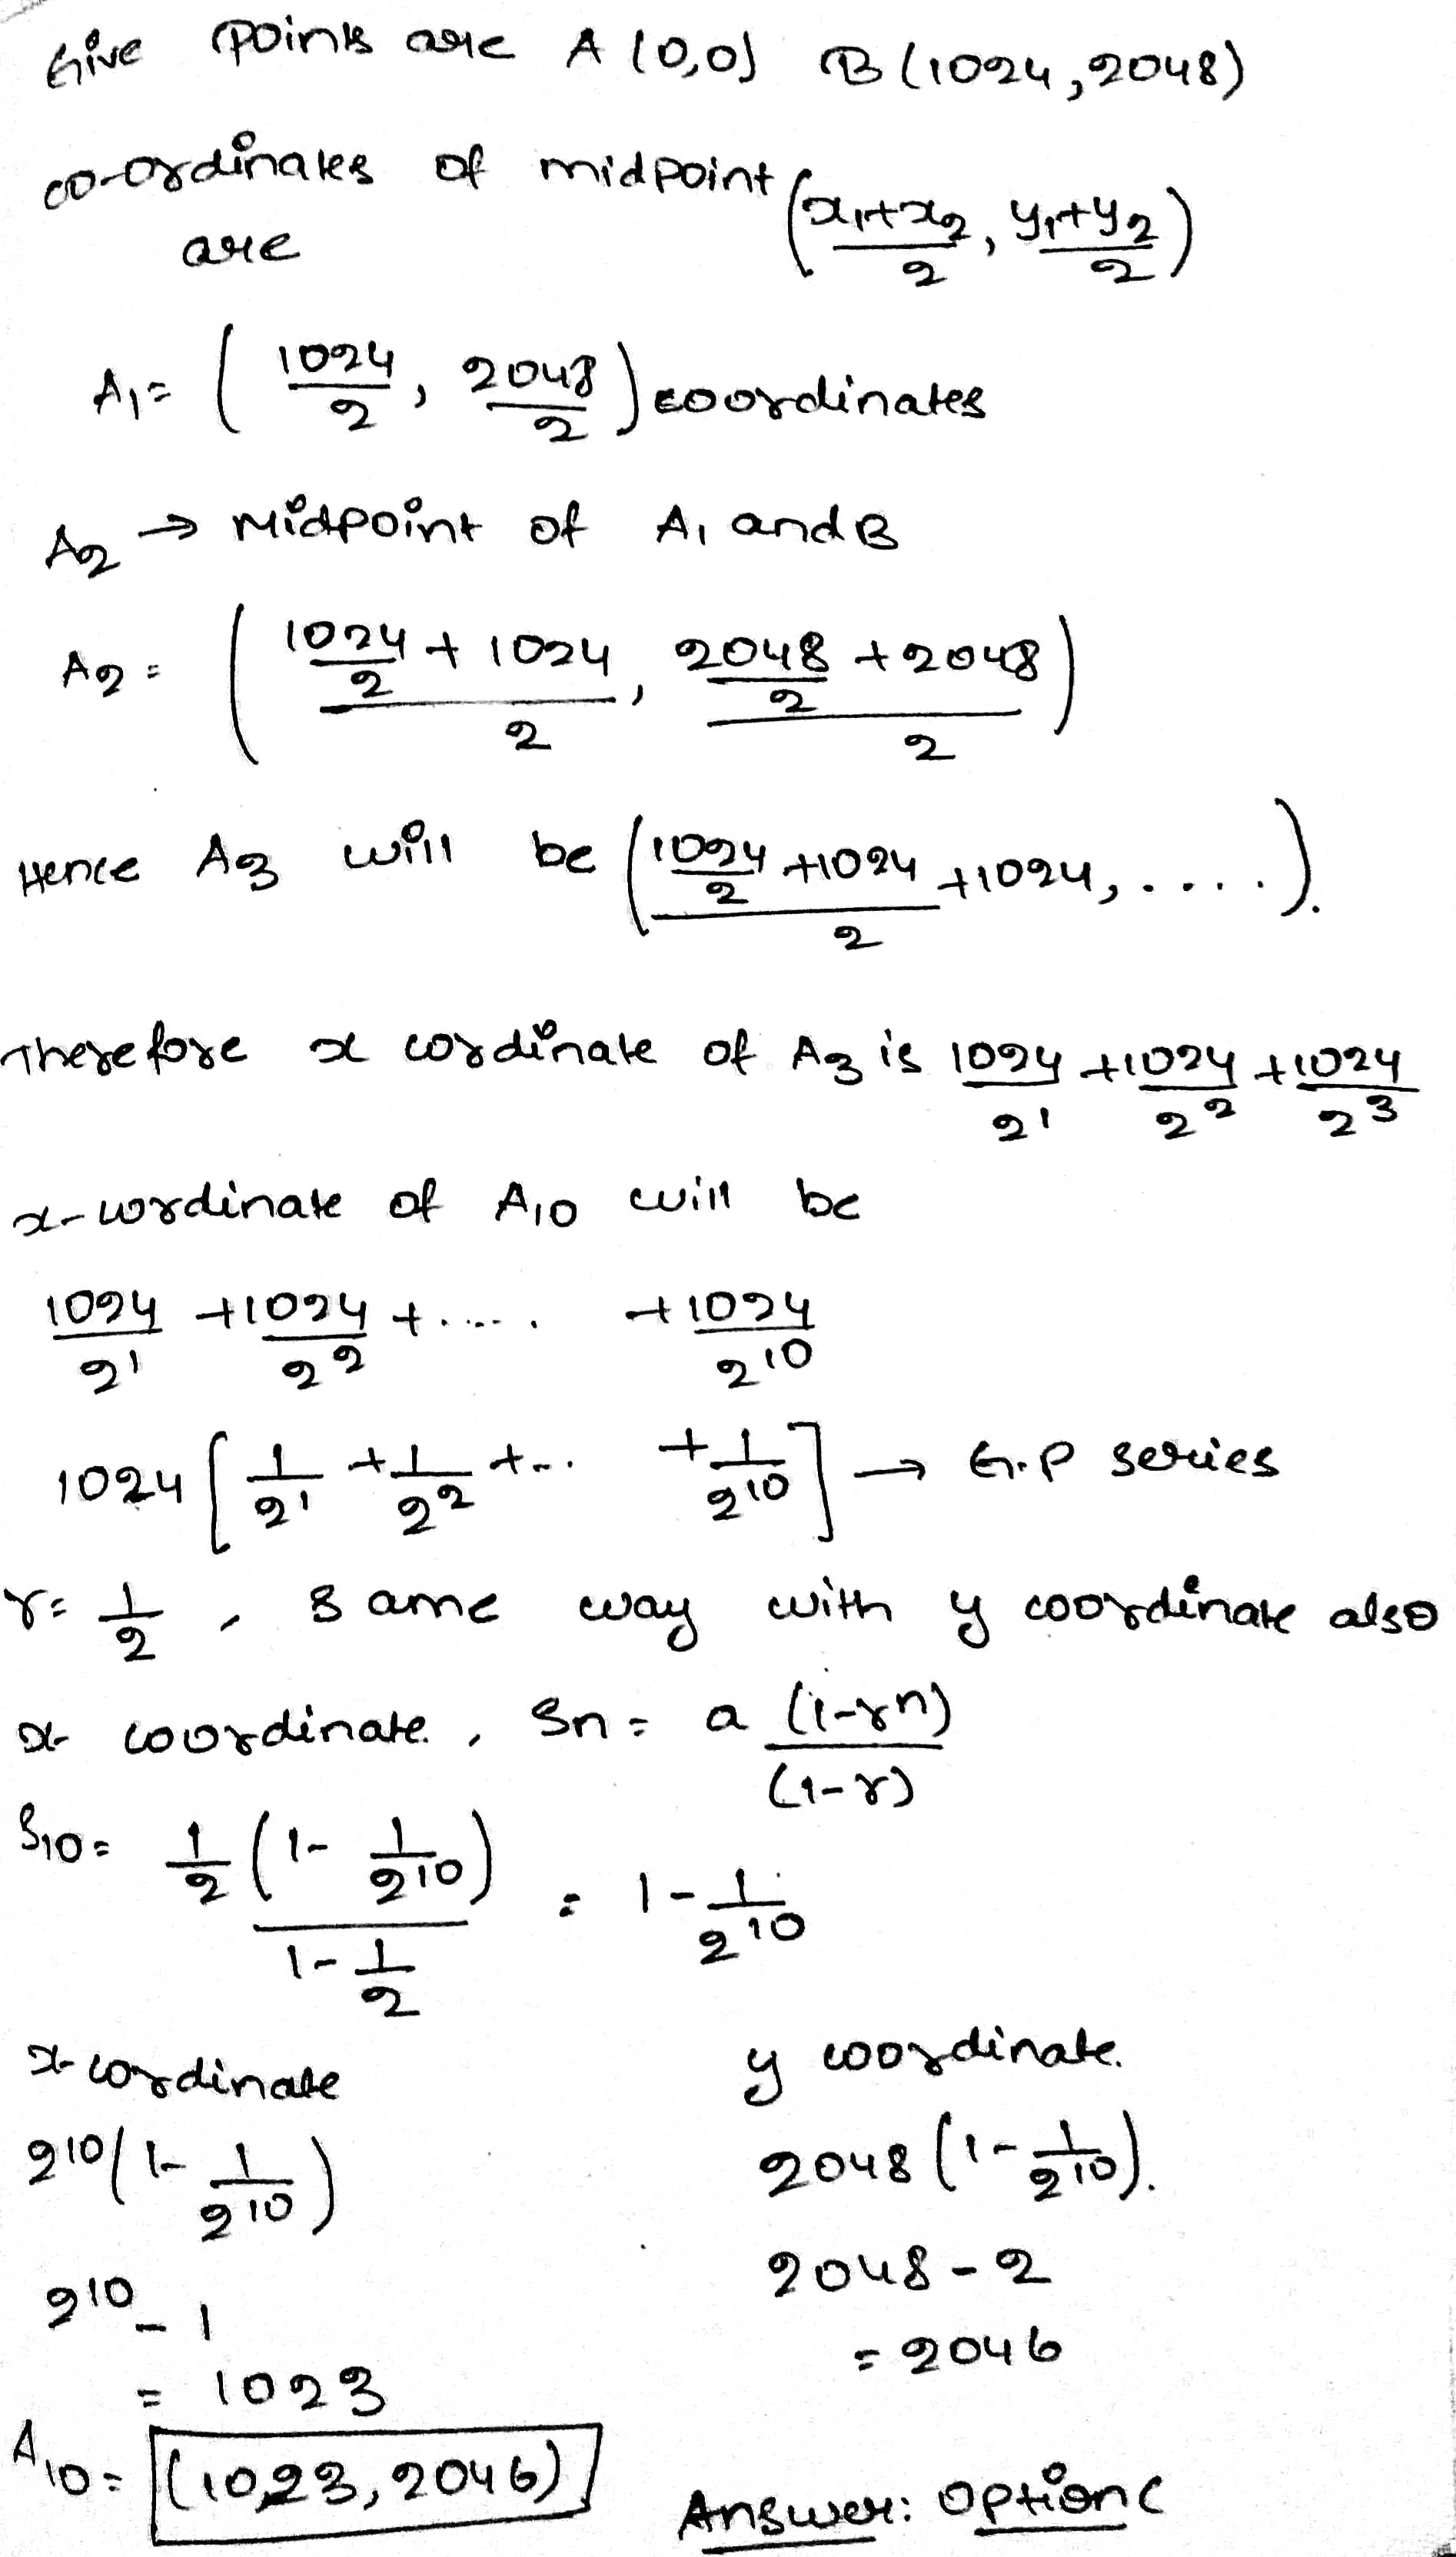 Give points are A (0,0) B (1024,2048)
co-ordinates of midpoint (x₁+x₂/2, y₁+y₂/2)
are
A₁= (1024/2, 2048/2) coordinates
A₂ → Midpoint of A₁ and B
A₂ = ((1024/2 + 1024)/2, (2048/2 + 2048)/2)
Hence A₃ will be ((1024/2 + 1024)/2 + 1024, ....).
Therefore x cordinate of A₃ is 1024/2¹ + 1024/2² + 1024/2³
x-cordinate of A₁₀ will be
1024/2¹ + 1024/2² + ..... + 1024/2¹⁰
1024 [1/2¹ + 1/2² + ... + 1/2¹⁰] → G.P series
r= 1/2 , same way with y coordinate also
x- coordinate. , Sn = a (1-rn)/(1-r)
S₁₀= 1/2 (1- 1/2¹⁰)/(1- 1/2) = 1- 1/2¹⁰
x- cordinate y coordinate.
2¹⁰(1- 1/2¹⁰) 2048 (1- 1/2¹⁰).
2¹⁰ - 1 2048 - 2
= 1023 = 2046
A₁₀= (1023, 2046) Answer: Option C